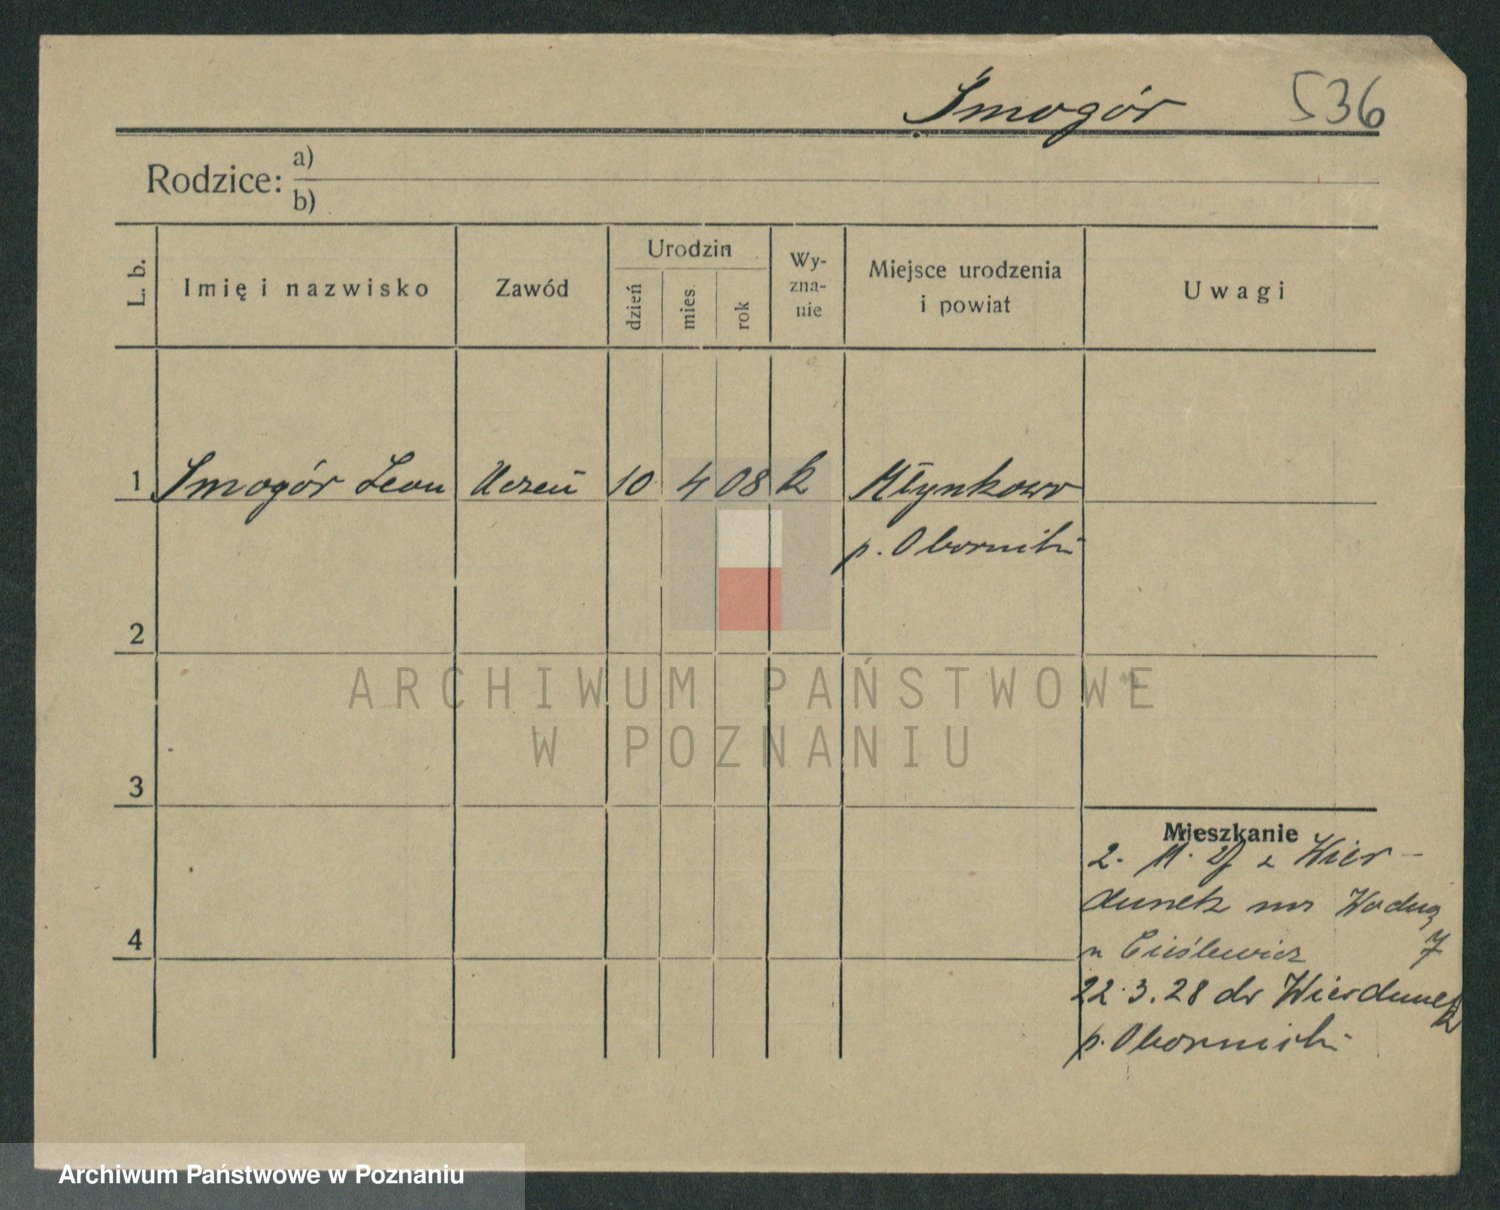 Smogór 536
Rodzice: a)
b)
L. b. Imię i nazwisko Zawód Urodzin dzień mies. rok Wy-zna-nie Miejsce urodzenia i powiat Uwagi
1 Smogór Leon Uczeń 10 4 08 k Młynkowo
p. Oborniki
2
ARCHIWUM PAŃSTWOWE
W POZNANIU
3
Mieszkanie
2. 11. 27 z Wier-
dunek na Wodną
4
u Cieślewicz 7
22.3.28 do Wierdunek
p. Oborniki
Archiwum Państwowe w Poznaniu